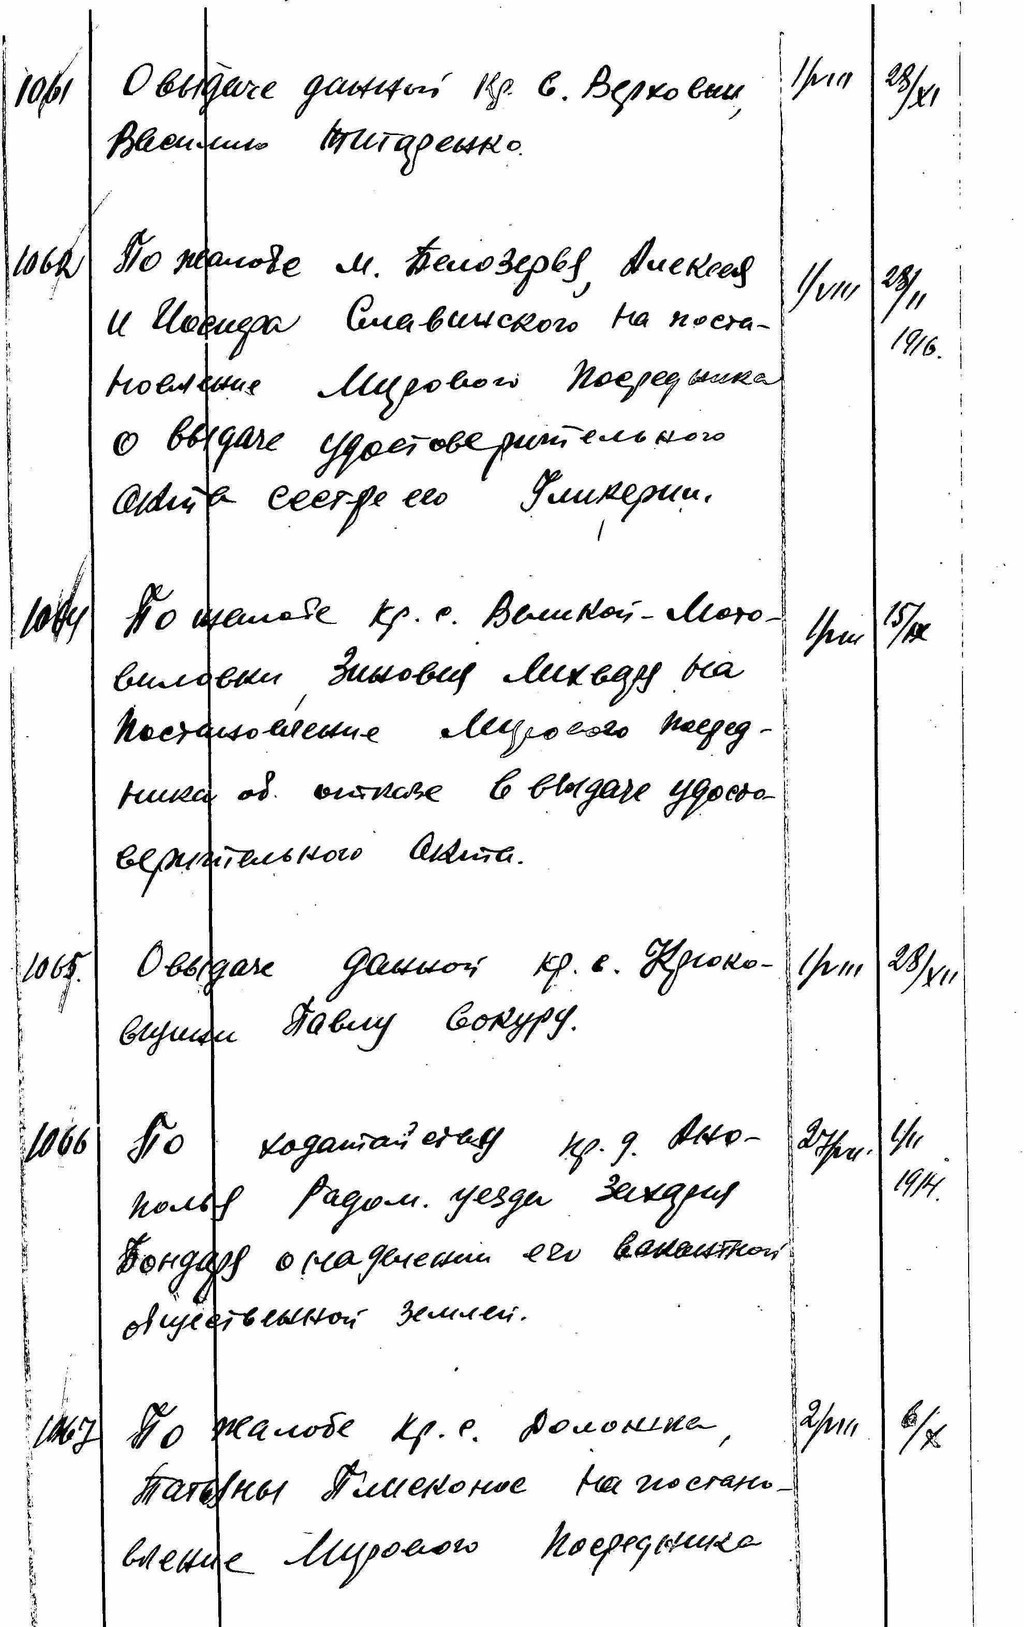 1061 О выдаче данной кр. с. Верховни, 1/VIII 28/XI
Василию Титаренко.
1062 По жалобе м. Белозерья, Алексея 1/VIII 28/II
и Иосифа Славинского на поста- 1916.
новление Мирового Посредника
о выдаче удостоверительного
акта сестре его Гликерии.
1064 По жалобе кр. с. Великой-Мото- 1/VIII 15/IX
виловки, Зиновия Лихваря на
постановление Мирового посред-
ника об. отказе в выдаче удосто-
верительного акта.
1065. О выдаче данной кр. с. Крюко- 1/VIII 28/XII
вщини Павлу Вокуру.
1066 По ходатайству кр. д. Ано- 1/II
полья Радом. уезда Захария 1914.
Бондаря о наделении его вакантной
общественной землей.
1067 По жалобе кр. с. 2/VIII 6/X
Татьяны на постано-
вление Мирового Посредника